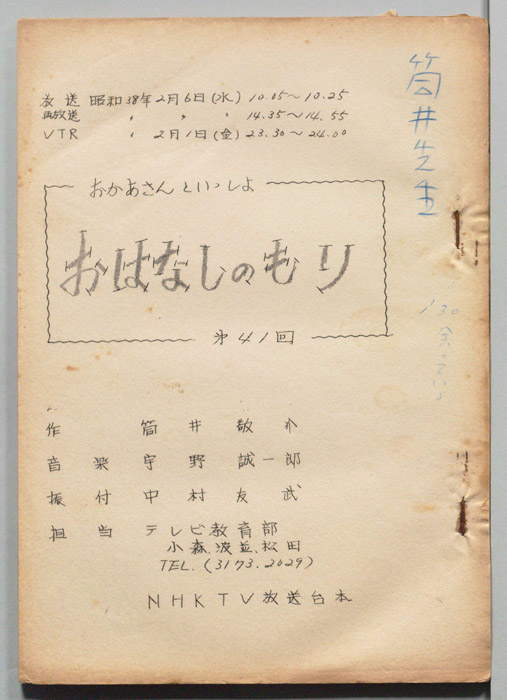 放送 昭和38年2月6日(水) 10.05～10.25
再放送 〃 〃 〃 14.35～14.55
VTR 〃 2月1日(金) 23.30～24.00
おかあさんといっしょ
おはなしのもり
第41回
作 筒井敬介
音楽 宇野誠一郎
振付 中村友武
担当 テレビ教育部
小森、波並、松田
TEL.(3173.2029)
NHKTV放送台本
筒井先生
130